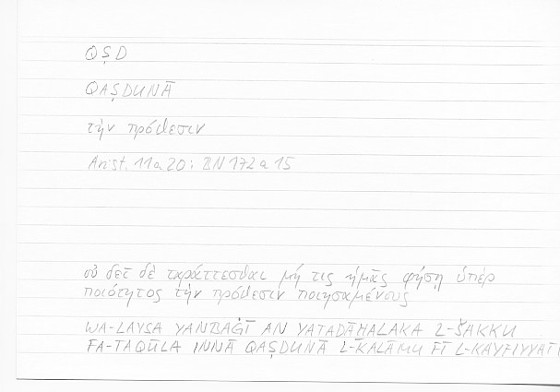 QṢD
QAṢDUNĀ
τὴν πρόθεσιν
Arist. 11a20; BN 172a15
οὐ δεῖ δὲ ταράττεσθαι μή τις ἡμᾶς φήσῃ ὑπὲρ
ποιότητος τὴν πρόθεσιν ποιησαμένους
WA-LAYSA YANBAĠĪ AN YATADĀḪALAKA L-ŠAKKU
FA-TAQŪLA INNĀ QAṢDUNĀ L-KALĀMU FĪ L-KAYFIYYATI